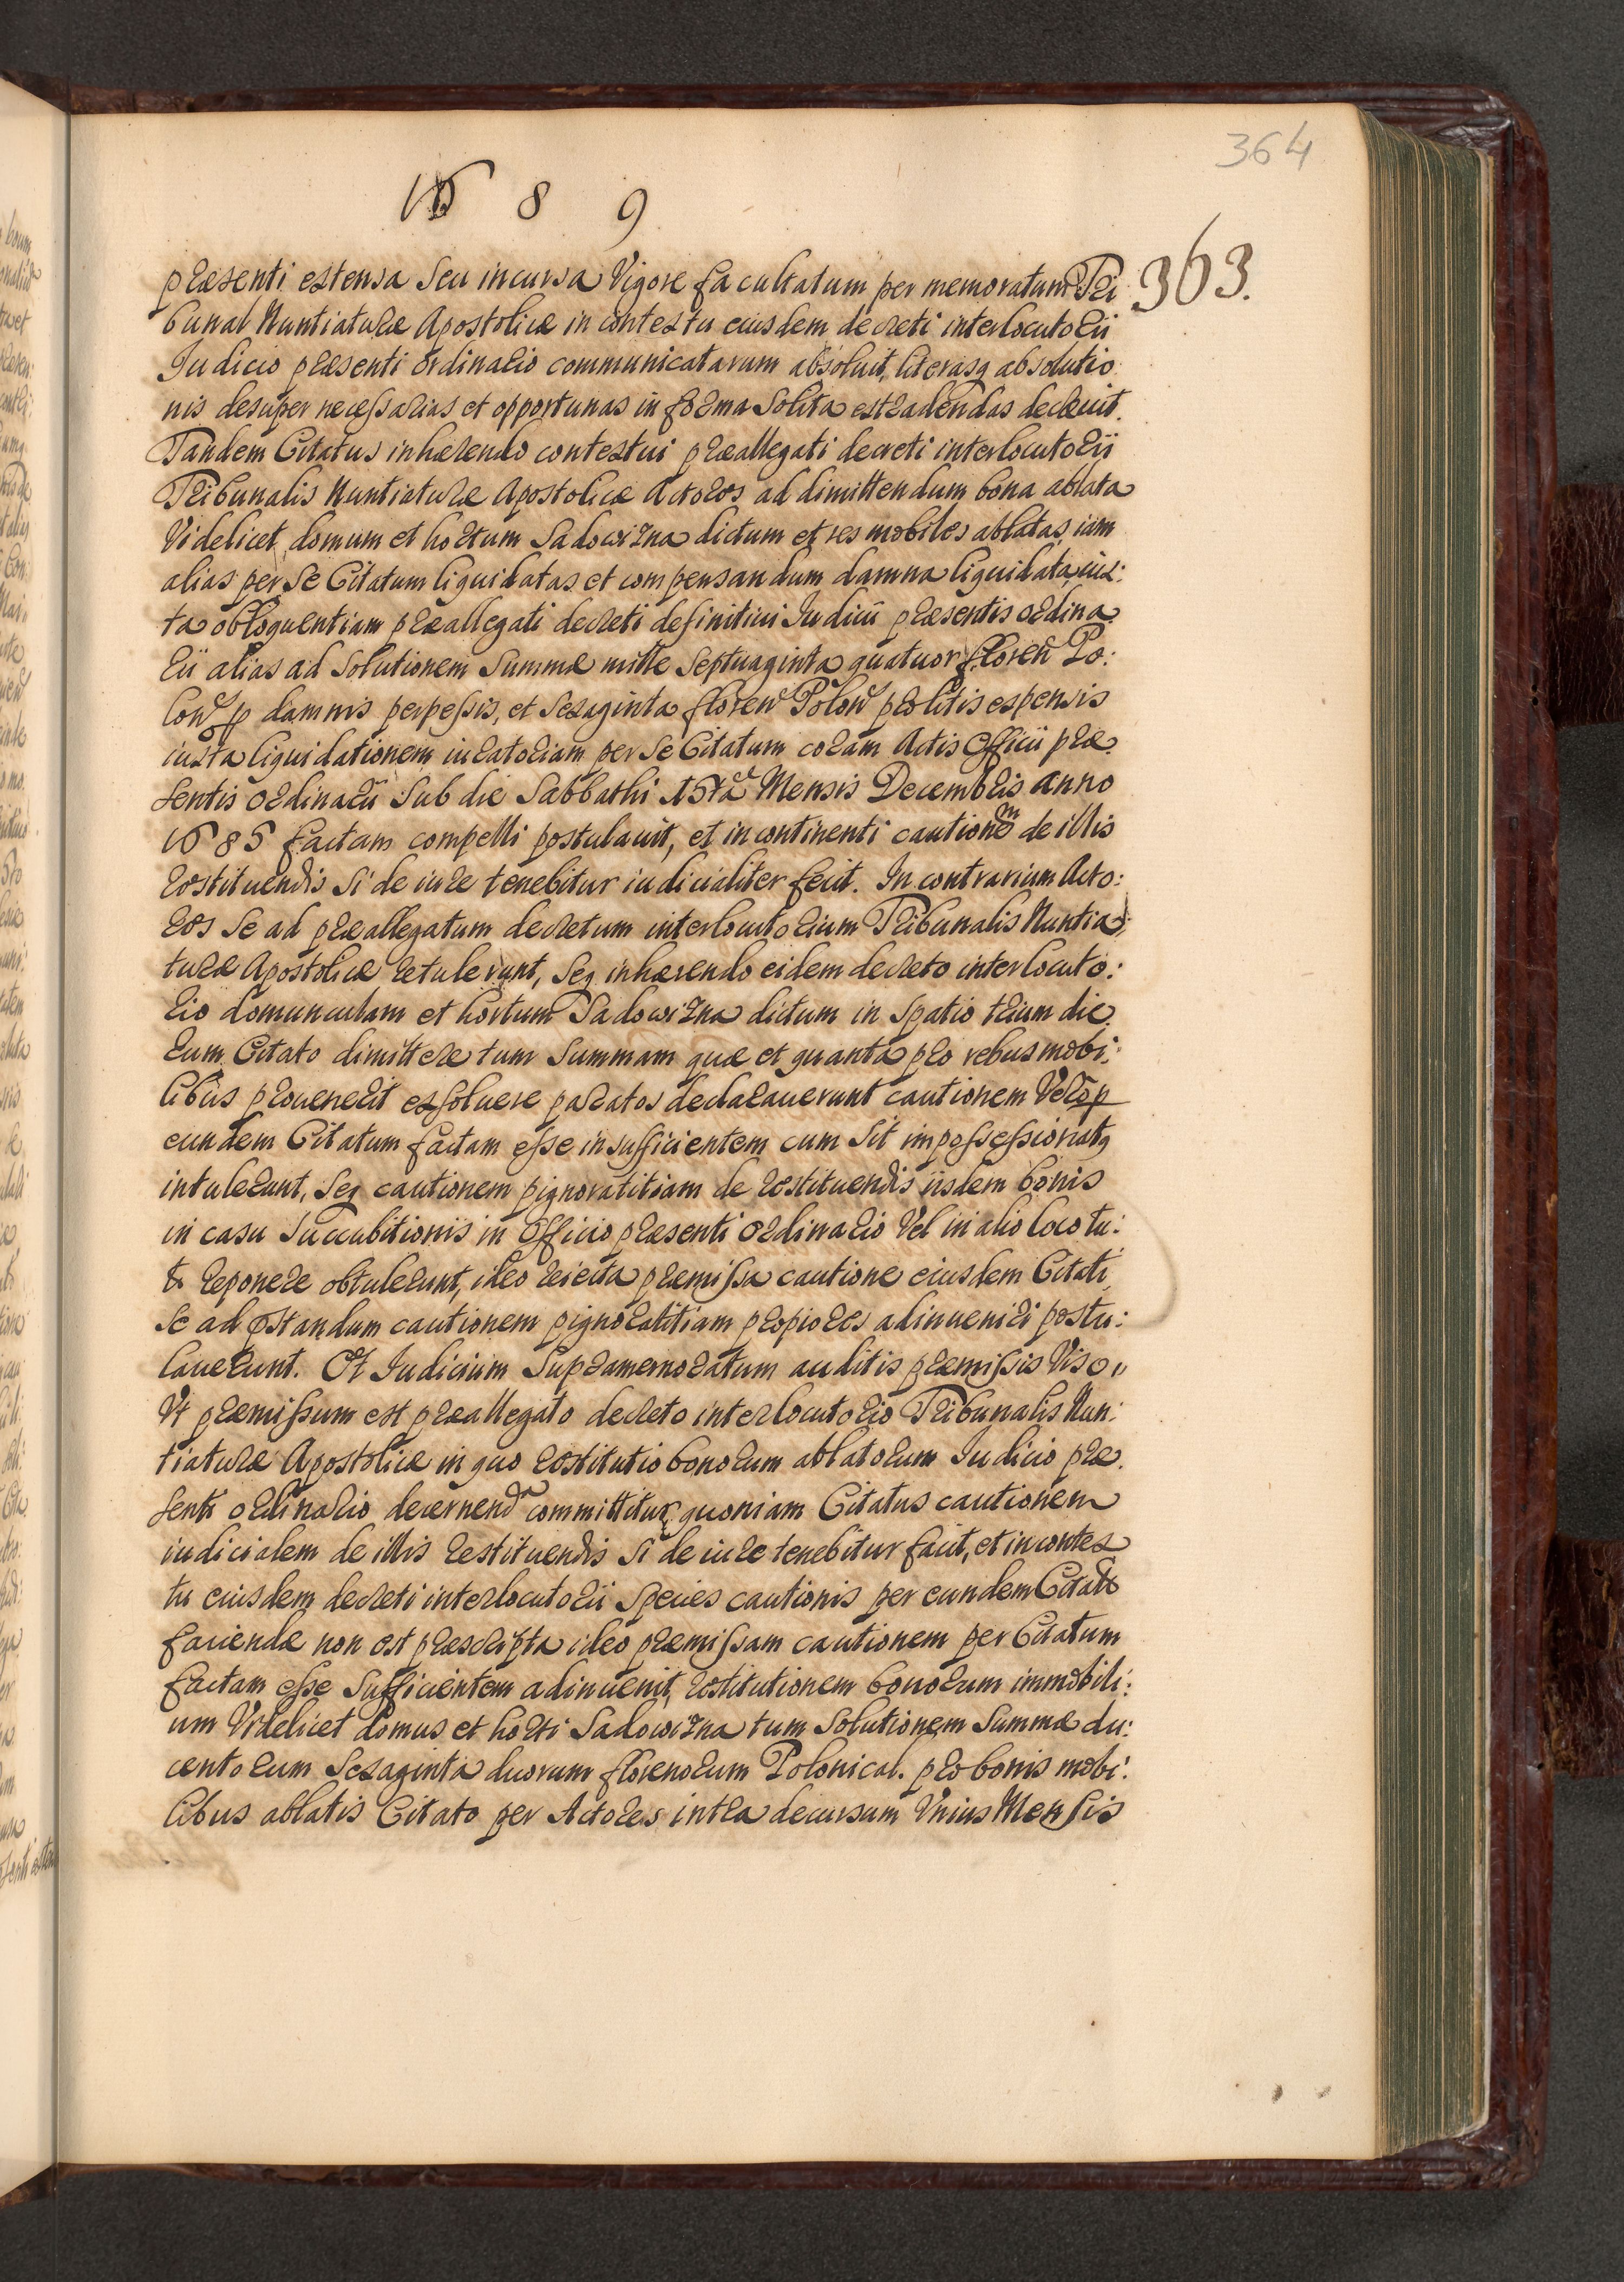 364
1689
363.
præsenti extensa seu incursa Vigore facultatum per memoratum Tri
bunal Nuntiaturæ Apostolicæ in contextu eiusdem decreti interlocutorii
Judicio præsenti ordinario communicatarum absoluit, literasq absolutio
nis desuper necessarias et opportunas in forma Solita extradendas decreuit.
Tandem Citatus inhærendo contextui præallegati decreti interlocutorii
Tribunalis Nuntiaturæ Apostolicæ Actores ad dimittendum bona ablata
Videlicet domum et hortum Sadowizna dictum et res mobiles ablatas, iam
alias per Se Citatum liquidatas et compensandum damna liquidata, iux:
ta obloquentiam præallegati decreti definitiui Judicii præsentis ordina
rii alias ad Solutionem Summæ mille Septuaginta quatuor floren Po:
lon p damnis perpessis, et Sexaginta floren Polon pro litis expensis
iuxta liquidationem iuratoriam per Se Citatum coram Actis Officii præ
sentis ordinarii Sub die Sabbathi 15ta Mensis Decembris anno
1685 factam compelli postulauit, et incontinenti cautionem de illis
restituendis Si de iure tenebitur iudicialiter fecit. In contrarium Acto:
res Se ad præallegatum decretum interlocutorium Tribunalis Nuntia:
turæ Apostolicæ retulerunt, Seq inhærendo eidem decreto interlocuto:
rio domunculam et hortum Sadowizna dictum in Spatio trium die
rum Citato dimittere tum Summam quæ et quanta pro rebus mobi:
libus prouenerit exsoluere paratos declarauerunt cautionem Vero p
eundem Citatum factam esse insufficientem cum Sit impossessionatq
intulerunt, Seq cautionem pignoratitiam de restituendis iisdem bonis
in casu Succubitionis in Officio præsenti ordinario Vel in alio loco tu:
to reponere obtulerunt, ideo reiecta præmissa cautione eiusdem Citati
Se ad pstandum cautionem pignoratitiam propiores adinueniri postu:
lauerunt. Et Judicium Supramemoratum auditis præmissis Viso
Vt præmissum est præallegato decreto interlocutorio Tribunalis Nun:
tiaturæ Apostolicæ in quo restitutio bonorum ablatorum Judicio præ
senti ordinario decernenda committitur, quoniam Citatus cautionem
iudicialem de illis restituendis Si de iure tenebitur facit, et in contex
tu eiusdem decreti interlocutorii Species cautionis per eundem Citatu
faciendæ non est præscripta ideo præmissam cautionem per Citatum
factam esse Sufficientem adinuenit, restitutionem bonorum immobili:
um Videlicet domus et horti Sadowizna tum Solutionem Summæ du:
centorum Sexaginta duorum florenorum Polonical. pro bonis mobi:
libus ablatis Citato per Actores intra decursum Vnius Mensis